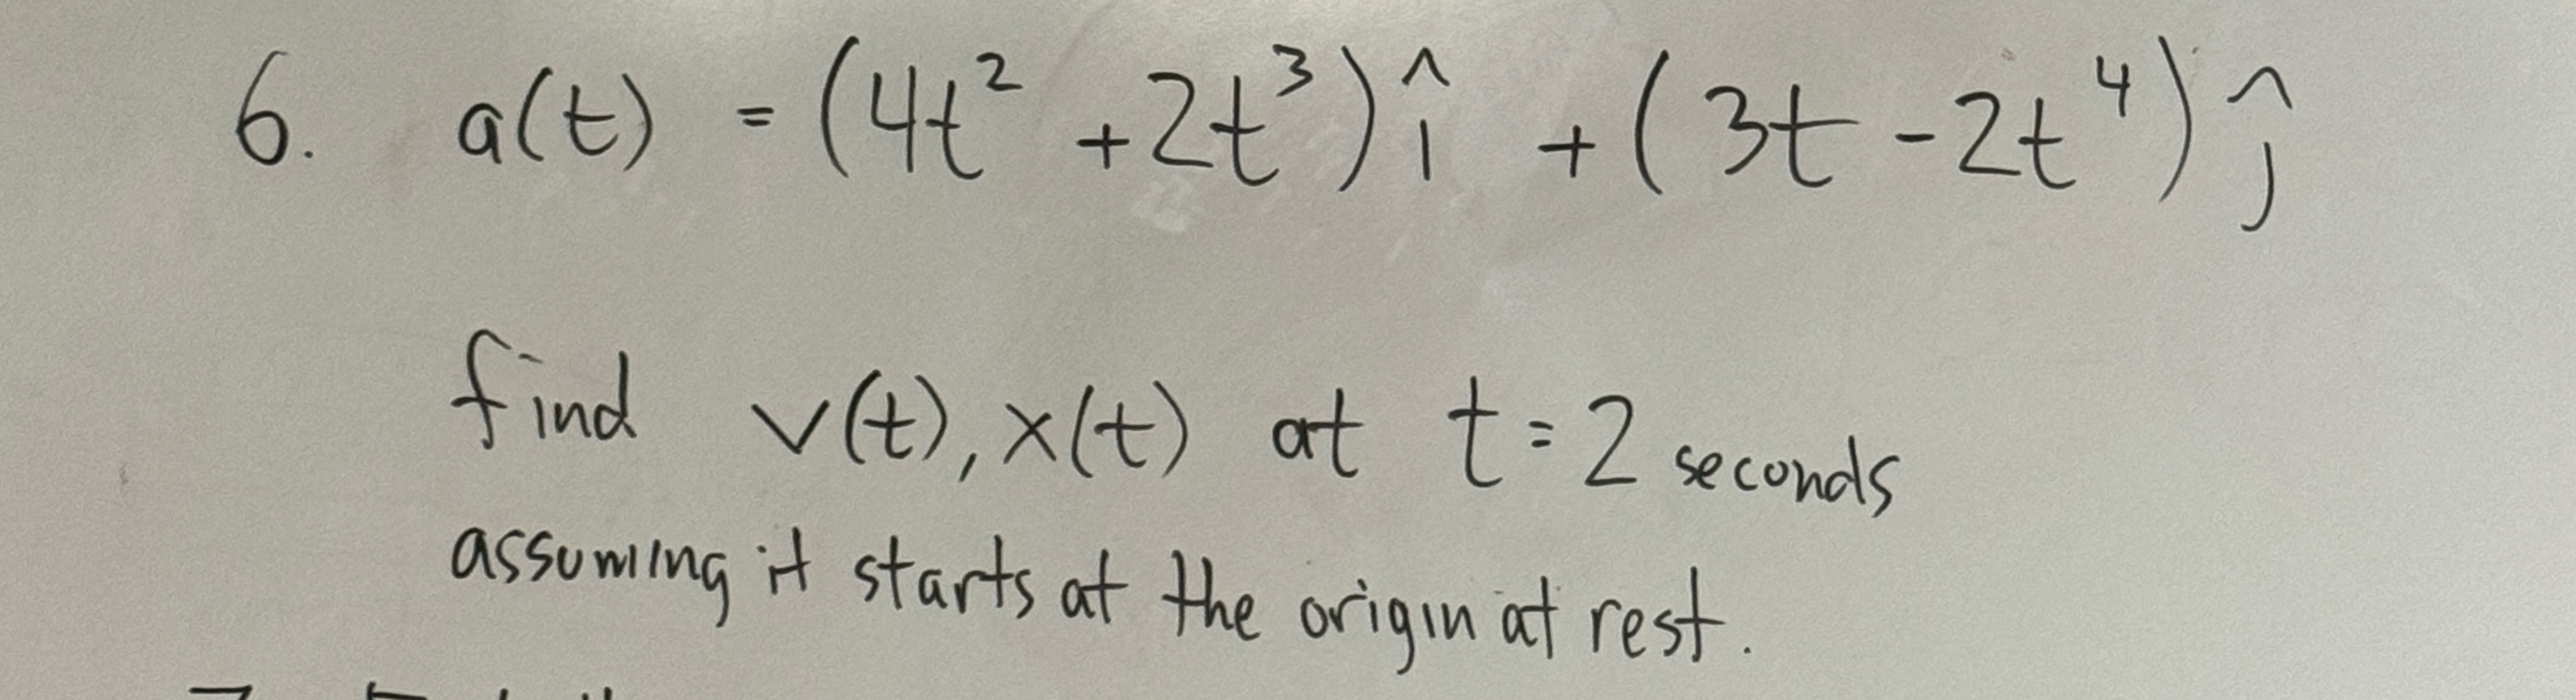 6. a(t) = (4t² + 2t³) î + (3t - 2t⁴) ĵ
find v(t), x(t) at t = 2 seconds
assuming it starts at the origin at rest.